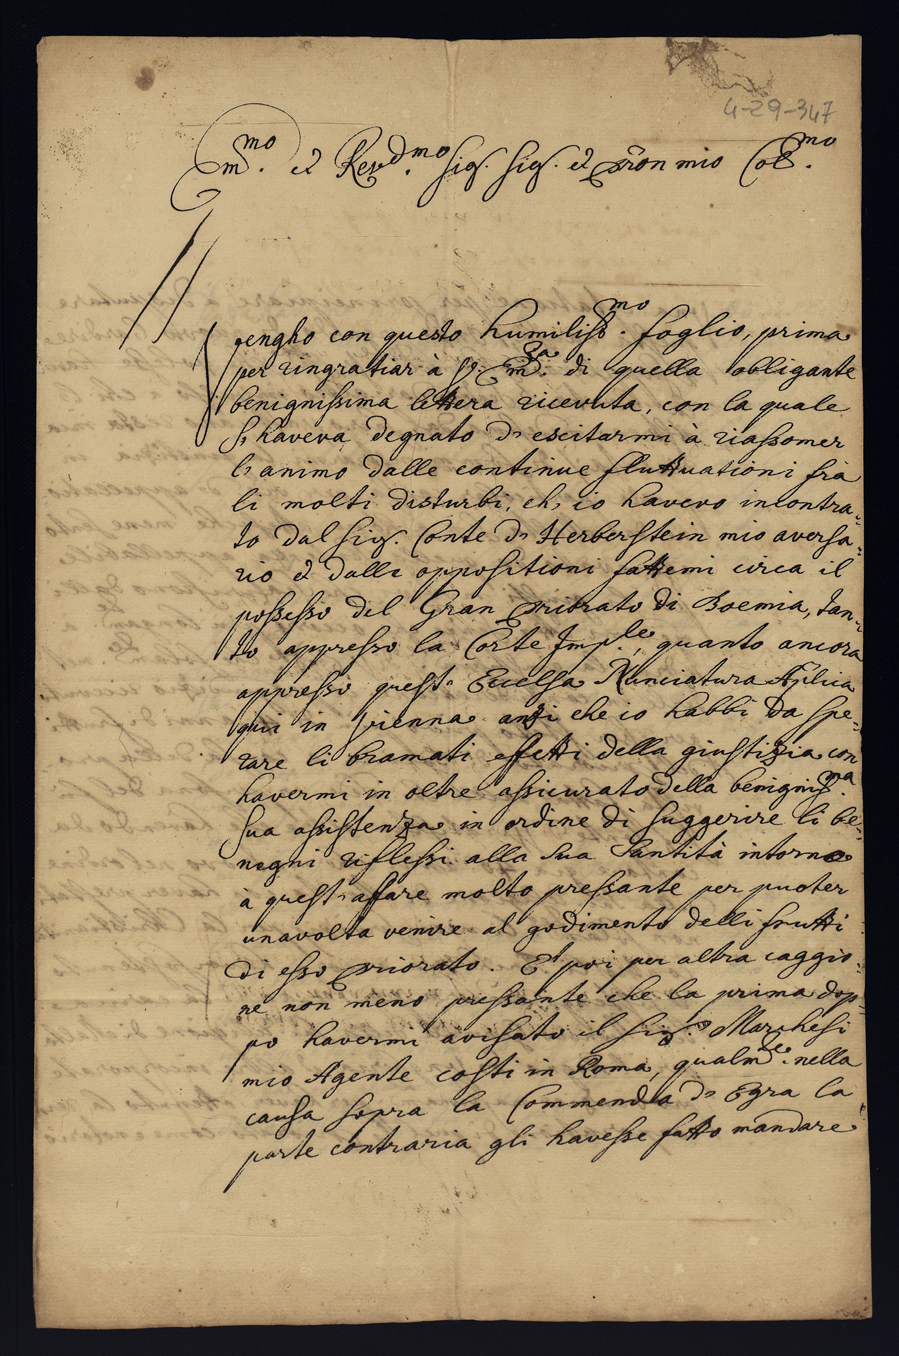 4-29-347
Em.mo et Rev.dmo Sig. Sig. et Pron mio Col.mo
Vengho con questo humiliss.mo foglio, prima
per ringratiar à V. Em.za di quella obligante
benignissima lettera ricevuta, con la quale
si haveva degnato d'escitarmi à riassomer
l'animo dalle continue fluttuationi frà
li molti disturbi, ch'io havevo incontra-
to dal Sig. Conte d'Herberstein mio aversa-
rio et dalli oppositioni fattemi circa il
possesso del Gran Priorato di Boemia, tan-
to appresso la Corte Imp.le, quanto ancora
appresso quest'Eccelsa Nunciatura Aplica
qui in Vienna anzi che io habbi da spe-
rare li bramati effetti della giustizia con
havermi in oltre assicurato della benignis.ma
sua assistenza in ordine di suggerire li be-
negni riflessi alla sua Santità intorno
à quest'affare molto pressante per puoter
unavolta venire al godimento delli frutti
di esso Priorato. Et poi per altra caggio-
ne non meno pressante che la prima dop-
po havermi avisato il Sig.r Marchesi
mio Agente costi in Roma, qualm.te nella
causa sopra la Commenda d'Egra la
parte contraria gli havesse fatto mandare